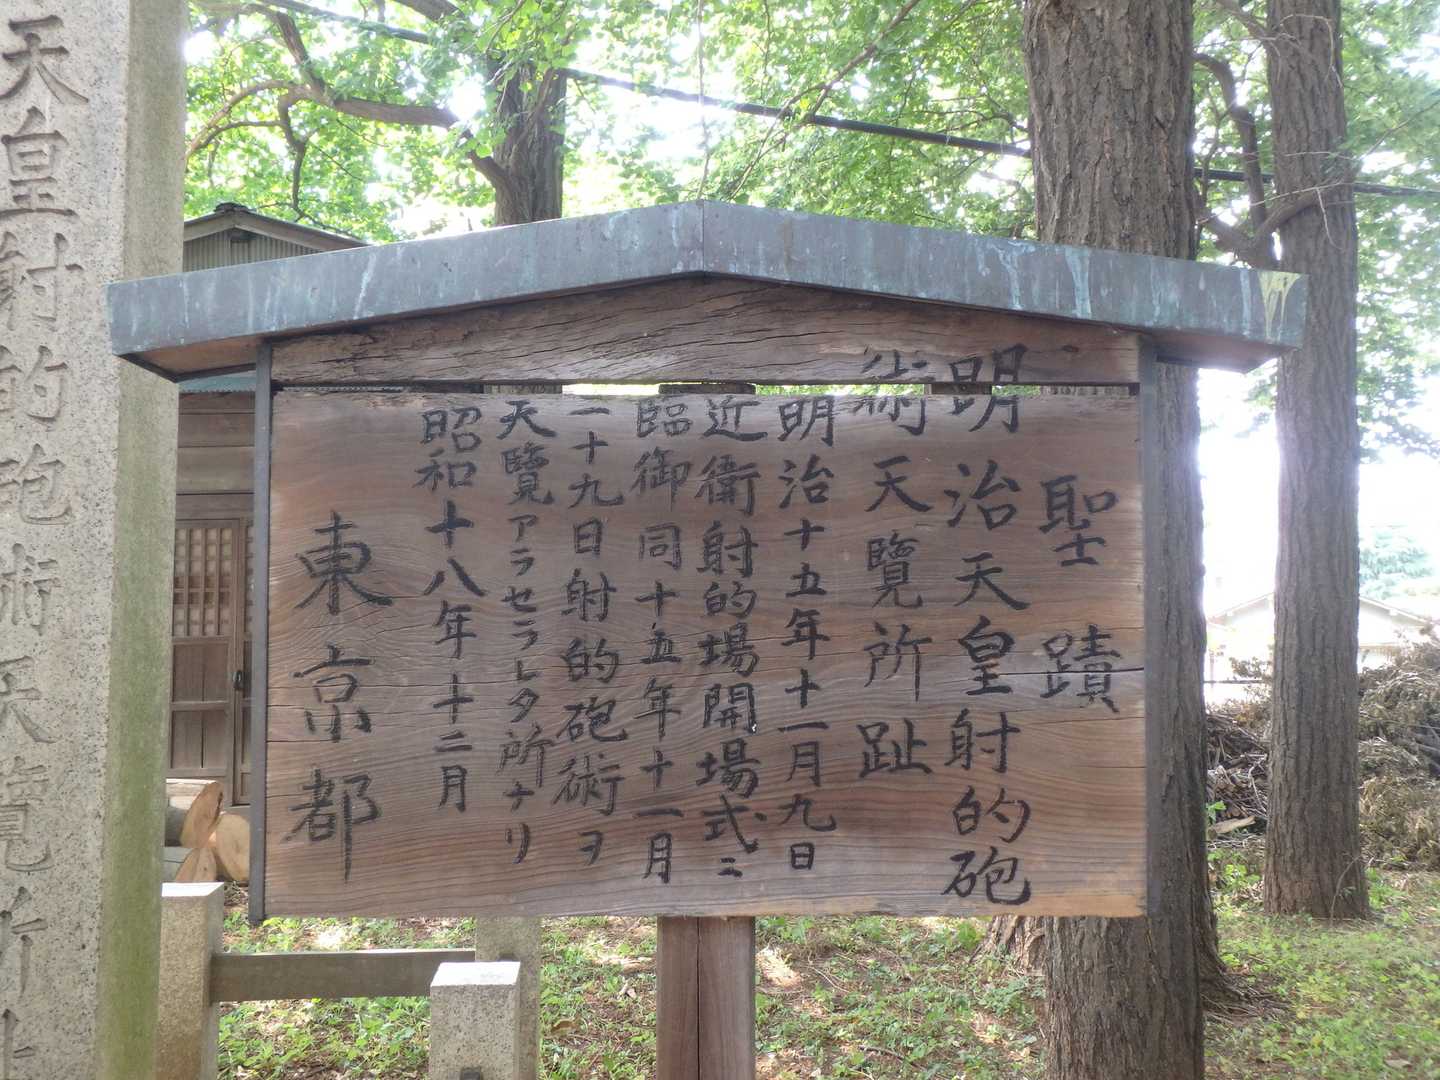 聖蹟
明治天皇射的砲
術天覽所趾
明治十五年十一月九日
近衛射的場開場式ニ
臨御同十五年十一月
二十九日射的砲術ヲ
天覽アラセラレタ所ナリ
昭和十八年十二月
東京都
天皇射的砲術天覽所